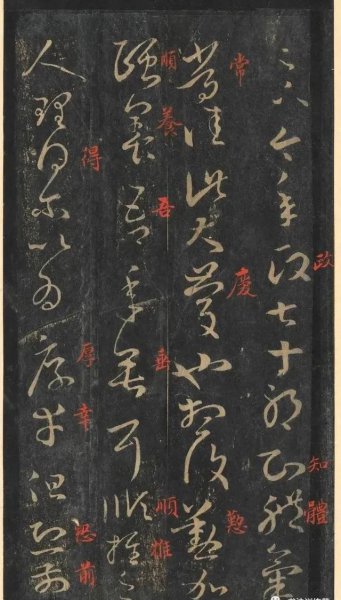 政 知 體
足下今年政七十耶知體氣
常 慶 懃
常佳此大慶也想復懃加
頤養 吾 垂 順 推
頤養吾年垂耳順推之
得 厚幸 恐前
人理得尔以為厚幸但恐前